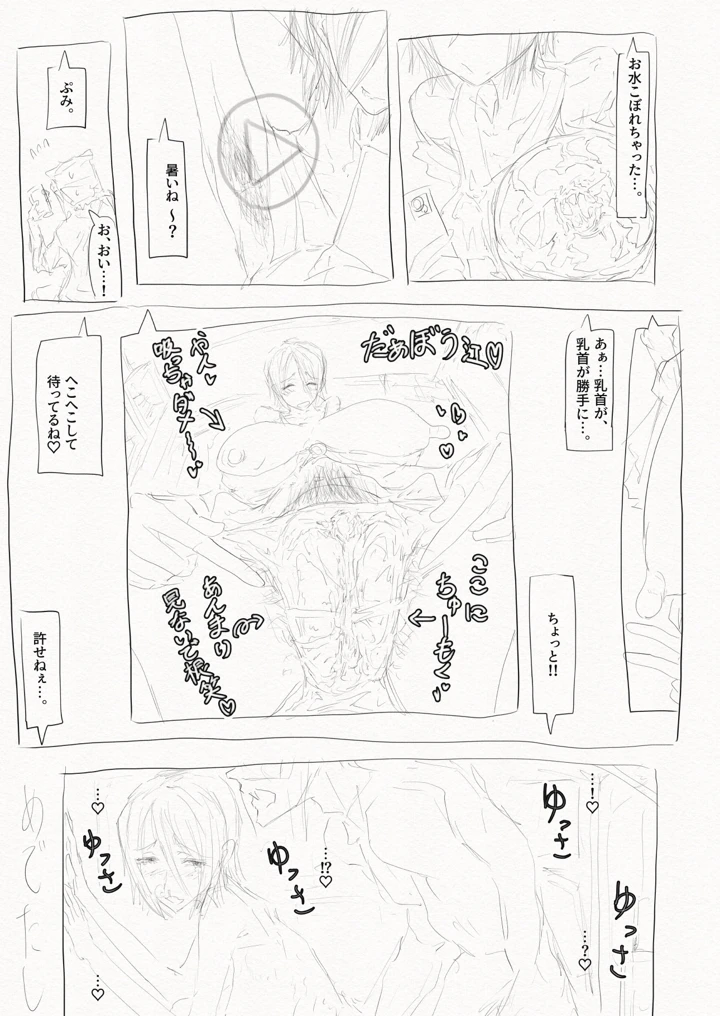 お水こぼれちゃった…。
暑いね～？
ぷみ。
お、おい…！
あぁ…乳首が、
乳首が勝手に…。
ちょっと!!
だぁぼう江♡
や人♡
吸っちゃダメ～♡
ここに
ちゅーもく♡
あんまり
見ないで笑♡
へこへこして
待ってるね♡
許せねぇ…。
…！♡
ゆっさ
ゆっさ
…？♡
…!?♡
ゆっさ
…♡
ゆっさ
…♡
めでたし